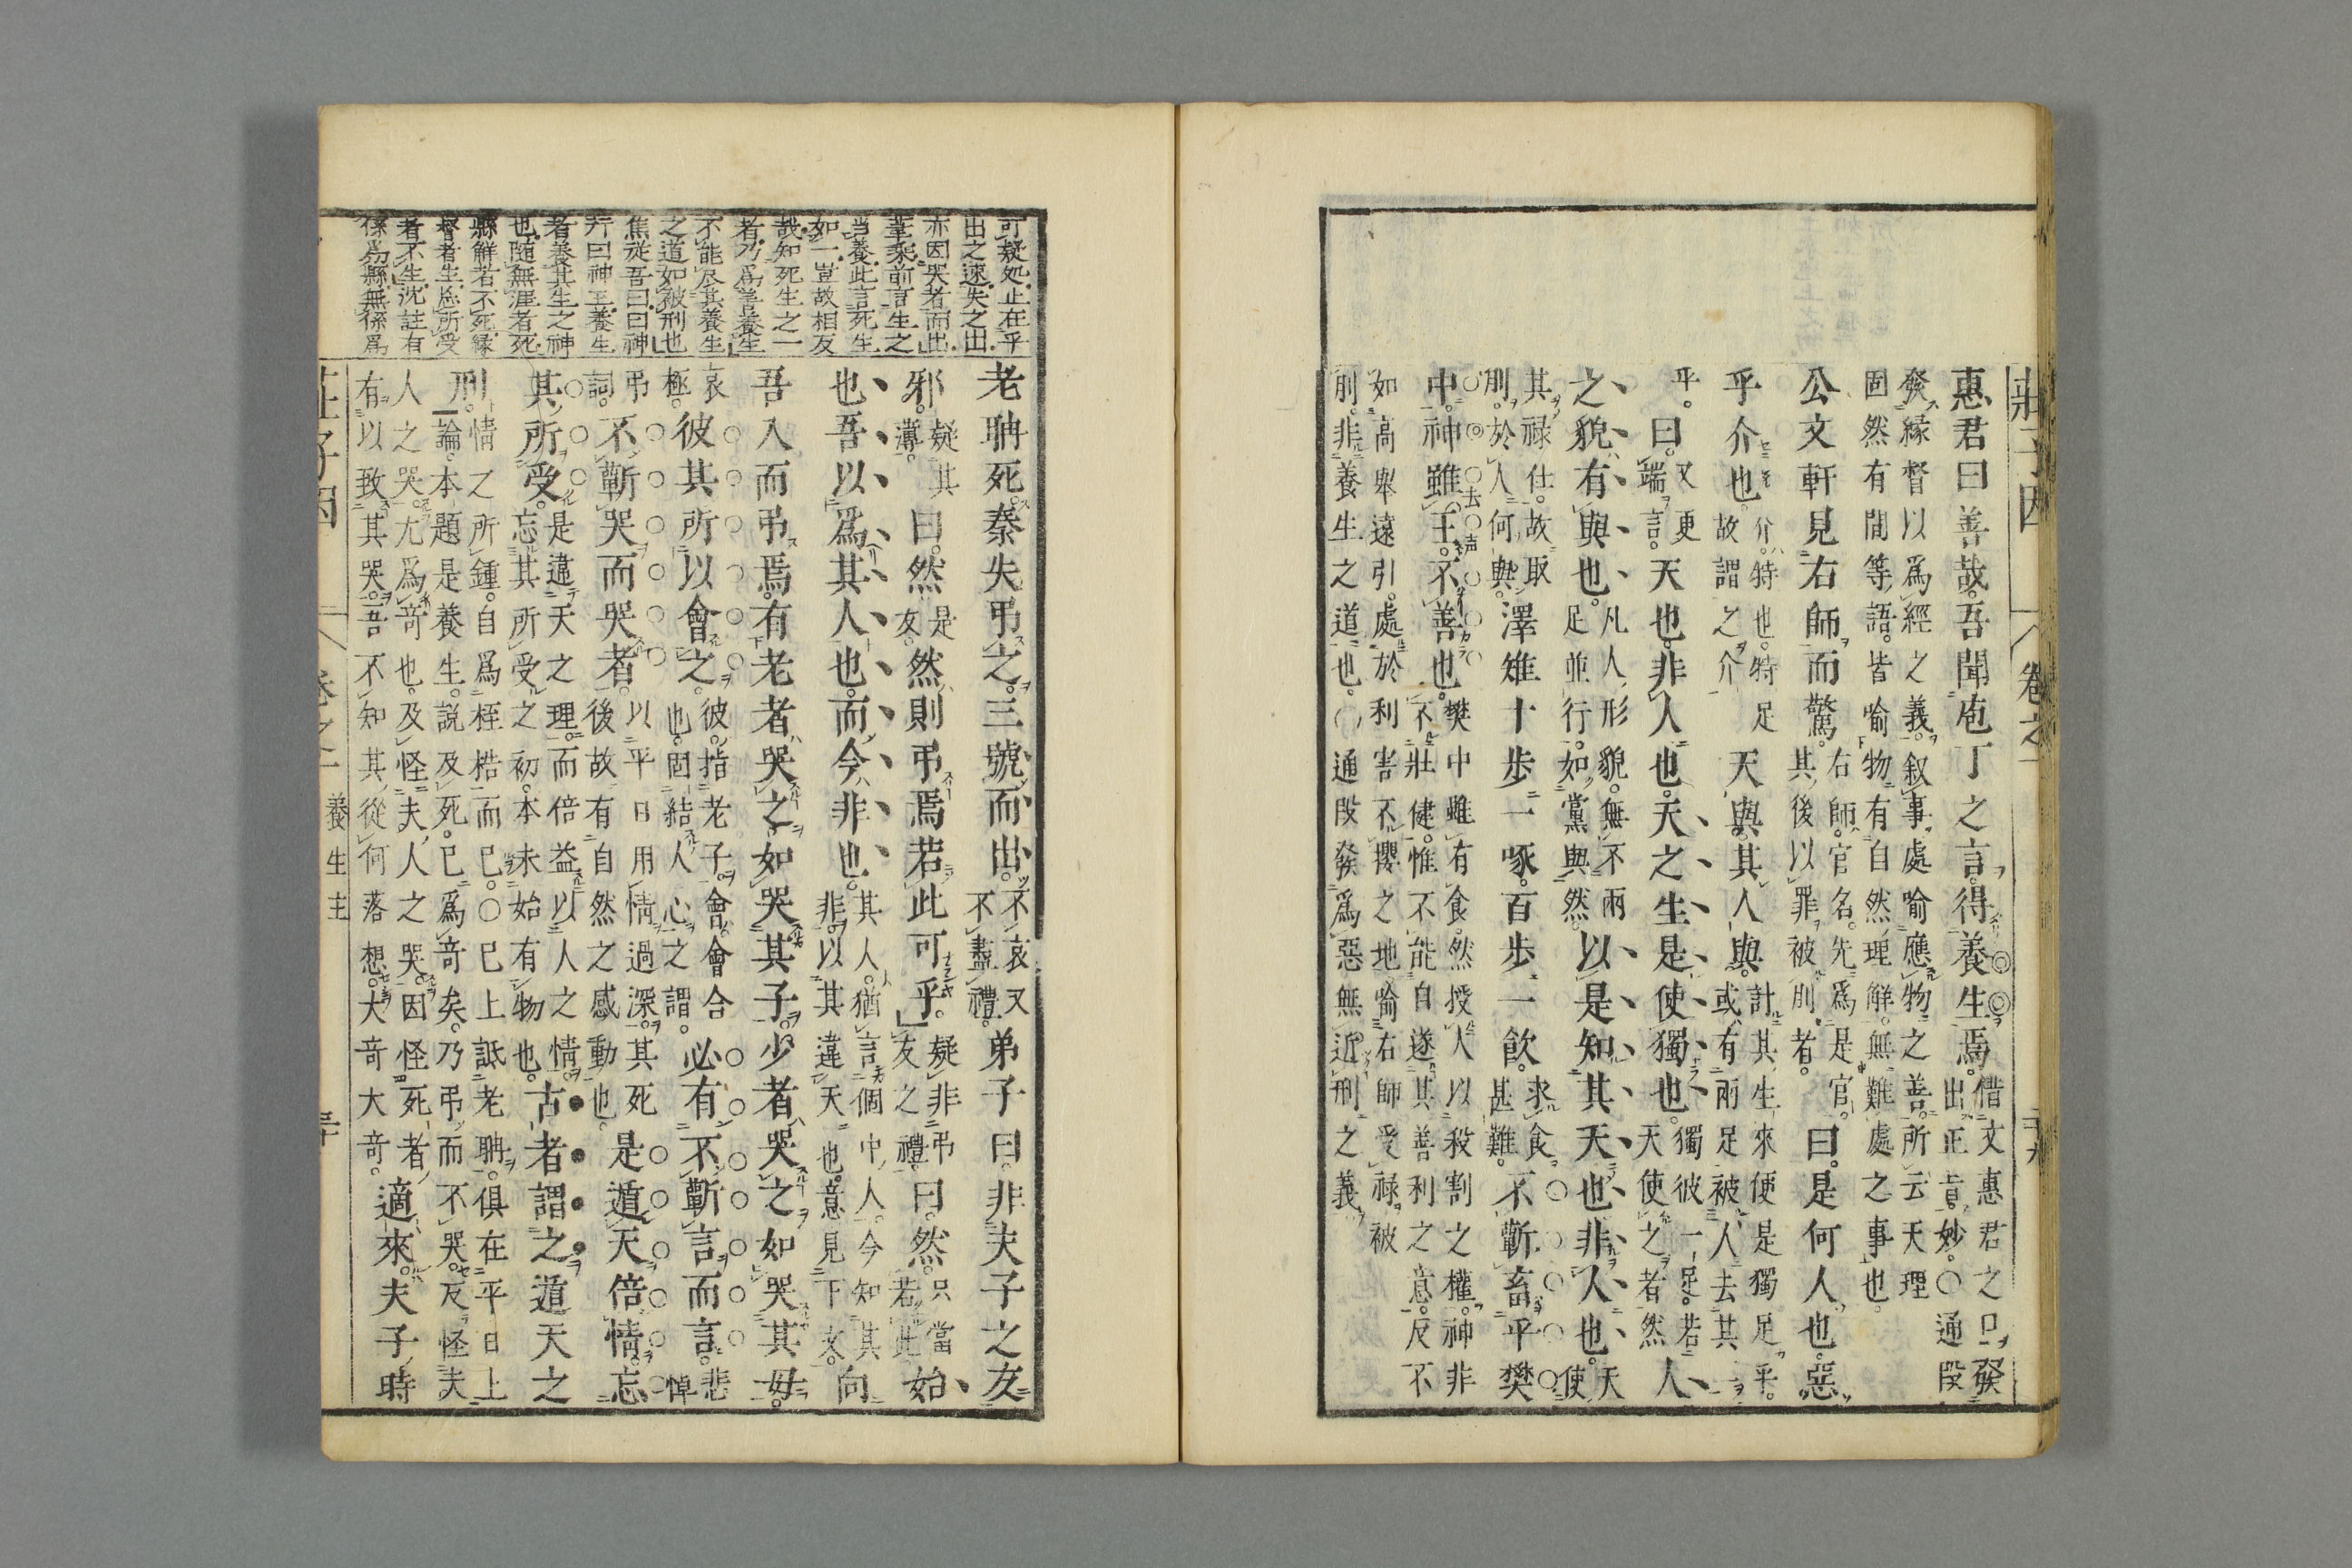 莊子因
卷之二
二十九
惠君曰善哉吾聞庖丁之言得養生焉借文惠君之口發
出正旨妙○通段
發緣督以爲經之義叙事處喻應物之善所云天理
固然有間等語皆喻物有自然理觧無難處之事也
公文軒見右師而驚右師官名先爲是官
其後以罪被刖者曰是何人也惡
乎介也介特也特足
故謂之介天與其人與計其生來便是獨足乎
或有兩足被人去其一
乎曰又更
端言天也非人也天之生是使獨也獨彼一足若
天使之者然人
之貌有與也凡人形貌無不兩
足並行如黨與然以是知其天也非人也天
使
其祿仕故取
刖於人何與澤雉十步一啄百步一飲求食
甚難不蘄畜乎樊
中神雖王不善也樊中雖有食然授人以殺割之權神非
不壯健惟不能自遂其善利之意反不
如高舉遠引處於利害不攖之地喻右師受祿被
刖非養生之道也○通段發爲惡無近刑之義
可疑処止在乎
出之速失之出
亦因哭者而出
葦栗前言生之
当養此言死生
如一豈故相反
哉知死生之一
者乃爲善養生
不能尽其養生
之道如被刑也
焦從吾曰曰神
行曰神王養生
者養其生之神
也隨無涯者死
縣觧若不死縁
督者生忘所受
者不生沈註有
係爲縣無係爲
老聃死秦失弔之三號而出不哀又
不盡禮弟子曰非夫子之友
邪疑其
薄曰然是
友然則弔焉若此可乎疑非弔
友之禮曰然只當
若此始
也吾以爲其人也而今非也其人猶言個中人今知其
非以其違天也意見下文向
吾入而弔焉有老者哭之如哭其子少者哭之如哭其母
哀
極彼其所以會之彼指老子會會合
也固結人心之謂必有不蘄言而言悲
悼
弔
詞不蘄哭而哭者以平日用情過深其死
後故有自然之感動也是遁天倍情忘
其所受是違天之理而倍益以人之情
忘其所受之初本未始有物也古者謂之遁天之
刑情之所鍾自爲桎梏而已○已上詆老聃俱在平日上
論本題是養生説及死已爲竒矣乃弔而不哭反怪夫
人之哭尤爲竒也及怪夫人之哭因怪死者
有以致其哭吾不知其從何落想大竒大竒適來夫子時
莊子因
卷之二
養生主
三十